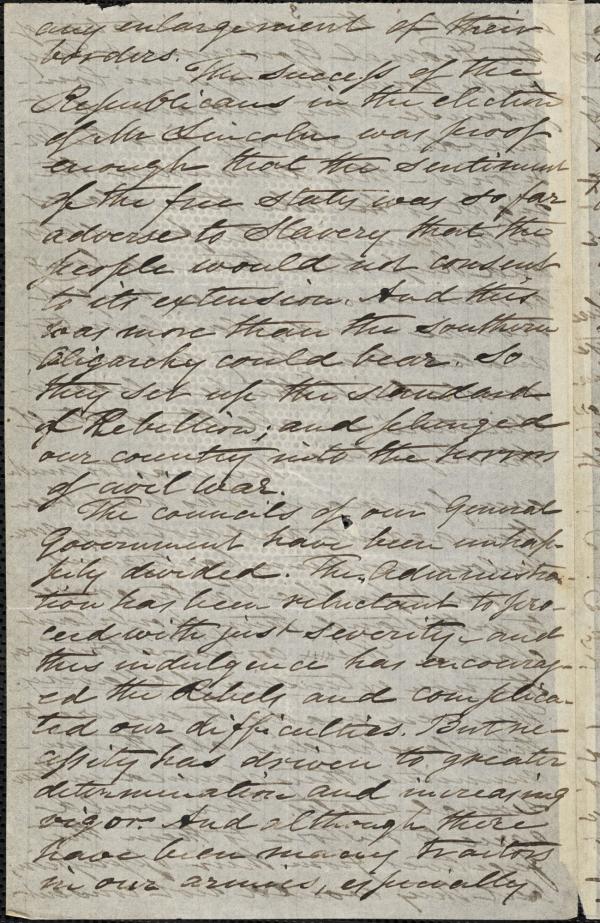 any enlargement of their
borders.
The success of the
Republicans in the election
of Mr Lincoln was proof
enough that the sentiment
of the free States was so far
adverse to Slavery that the
people would not consent
to its extension. And this
was more than the Southern
Oligarchy could bear. So
they set up the standard
of Rebellion; and plunged
our country into the horrors
of civil war.
The councils of our General
Government have been unhap-
pily divided. The Administra-
tion has been reluctant to pro-
ceed with just severity and
this indulgence has encourag-
ed the Rebels and complica-
ted our difficulties. But ne-
cessity has driven to greater
determination and increasing
vigor. And although there
have been many traitors
in our armies, especially